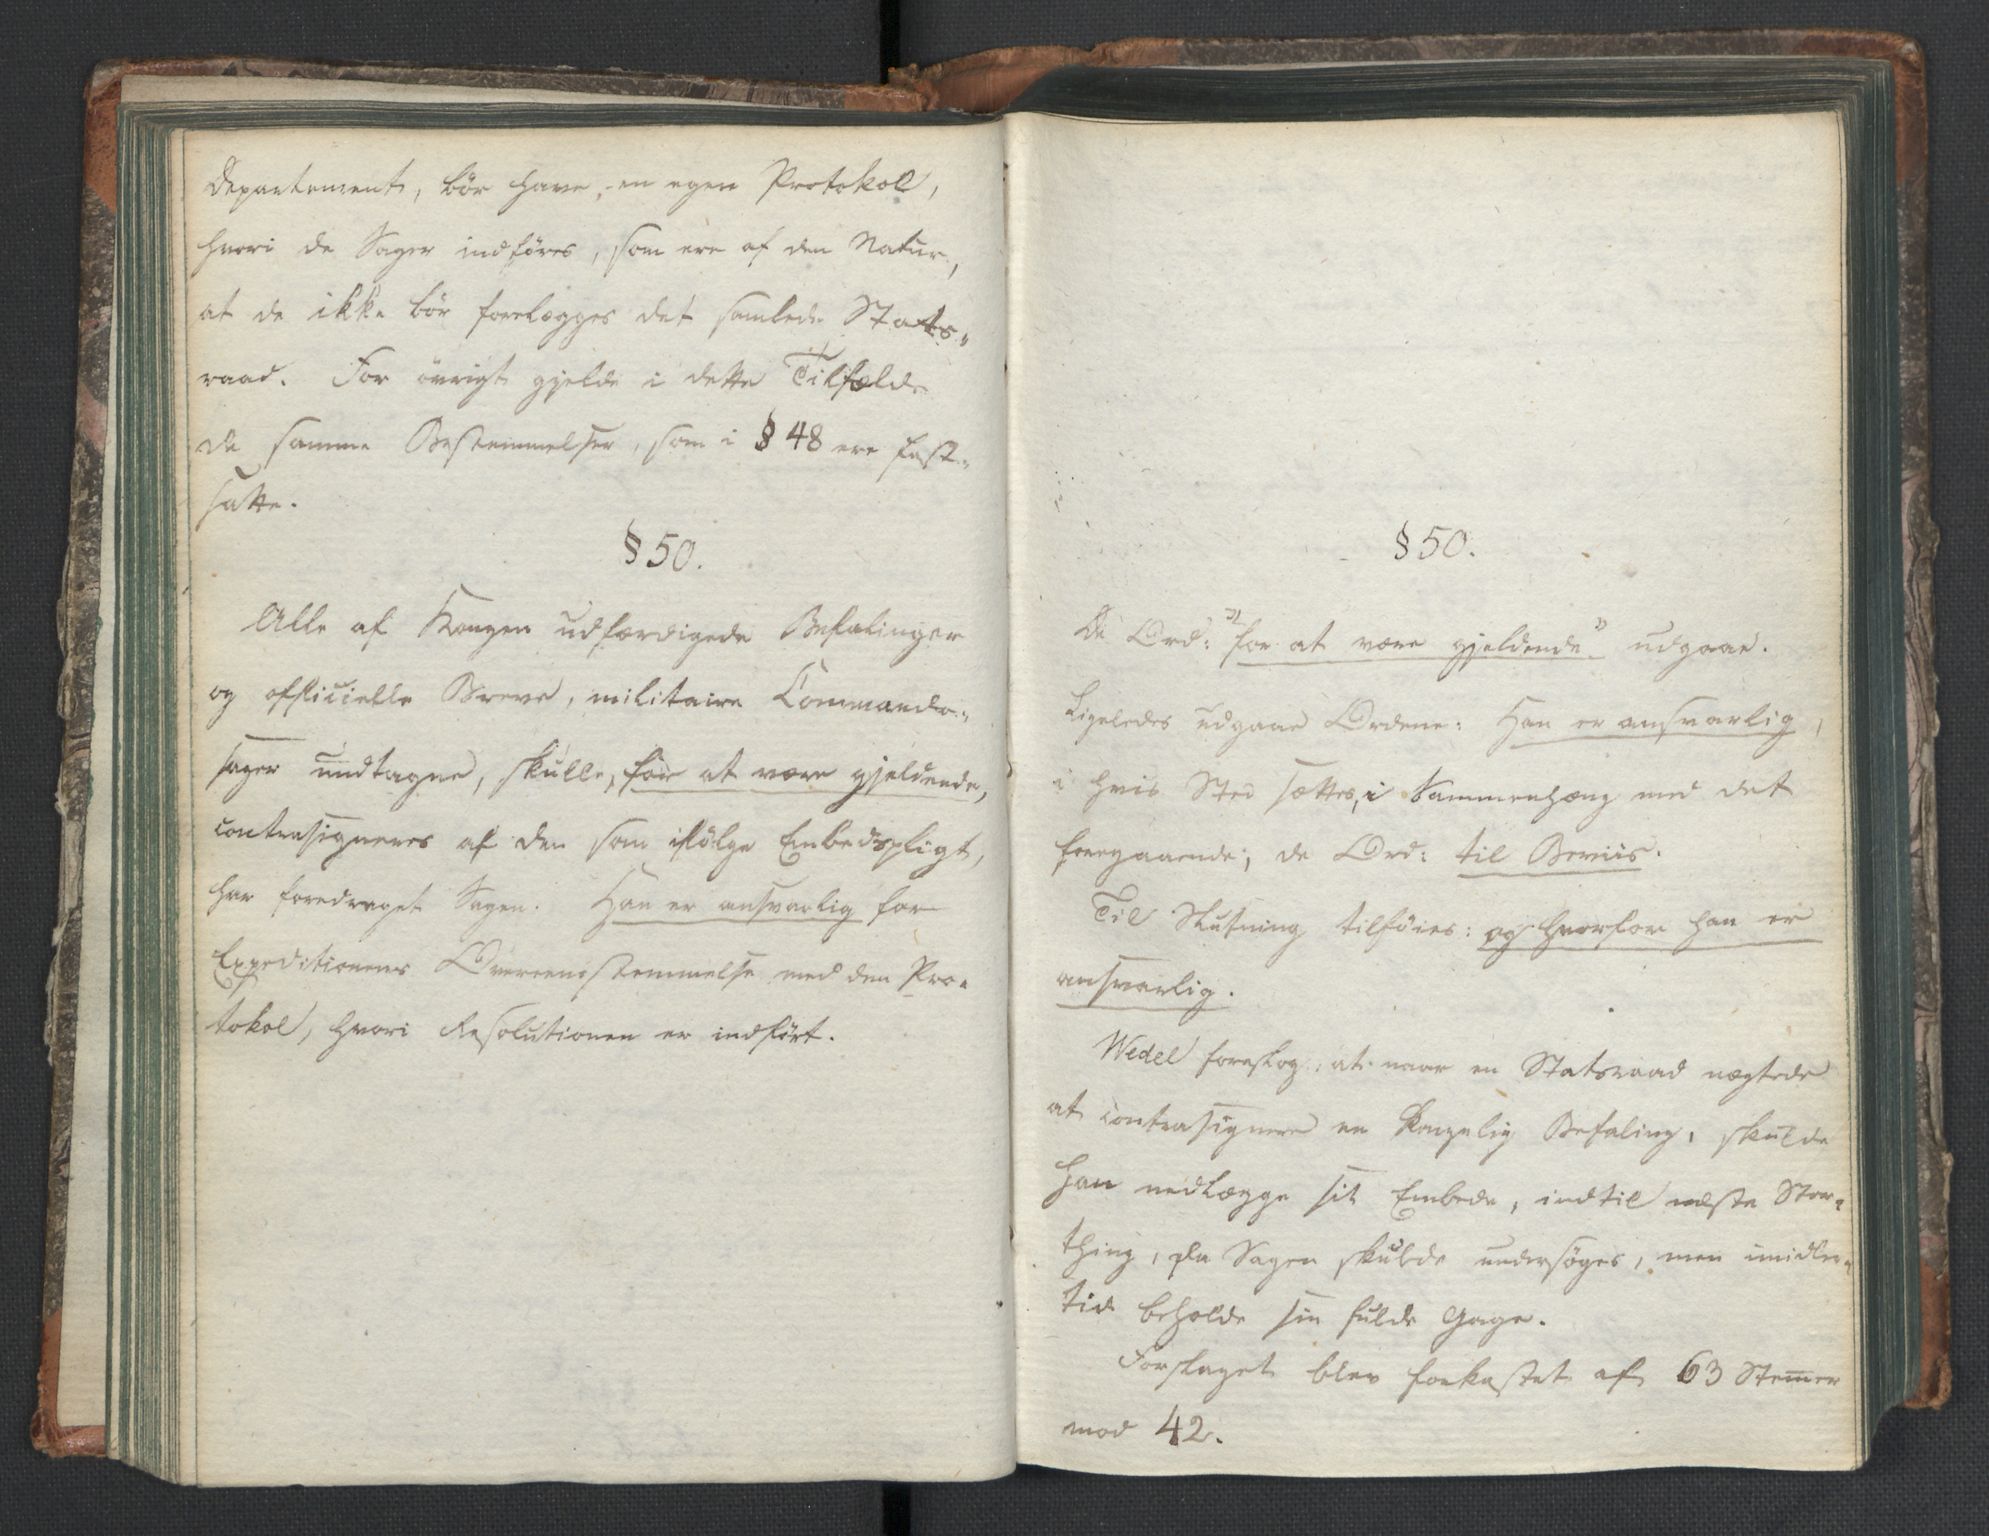 Departement, bör have, en egen Protokol,
hvori de Sager indföres, som ere af den Natur,
at de ikke bör forelægges det samlede Stats-
raad. For övrigt gjelde i dette Tilfælde
de samme Bestemmelser, som i § 48 ere fast-
satte.
§ 50.
Alle af Kongen udfærdigede Befalinger
og officielle Breve, militaire Commando-
sager undtagne, skulle, for at være gjeldende,
contrasigneres af den som ifölge Embedspligt,
har foredraget Sagen. Han er ansvarlig for
Expeditionens Overeensstemmelse med den Pro-
tokol, hvori Resolutionen er indfört.
§ 50.
De Ord: "for at være gjeldende" udgaae.
Ligeledes udgaae Ordene: Han er ansvarlig,
i hvis Sted sættes, i Sammenhæng med det
foregaaende, de Ord: til Beviis.
Til Slutning tilföies: og hvorfor han er
ansvarlig.
Wedel foreslog, at naar en Statsraad nægtede
at contrasignere en Kongelig Befaling, skulde
han nedlægge sit Embede, indtil næste Stor-
thing, da Sagen skulde undersöges, men imidler-
tid beholde sin fulde Gage.
Forslaget blev forkastet af 63 Stem̅er
mod 42.